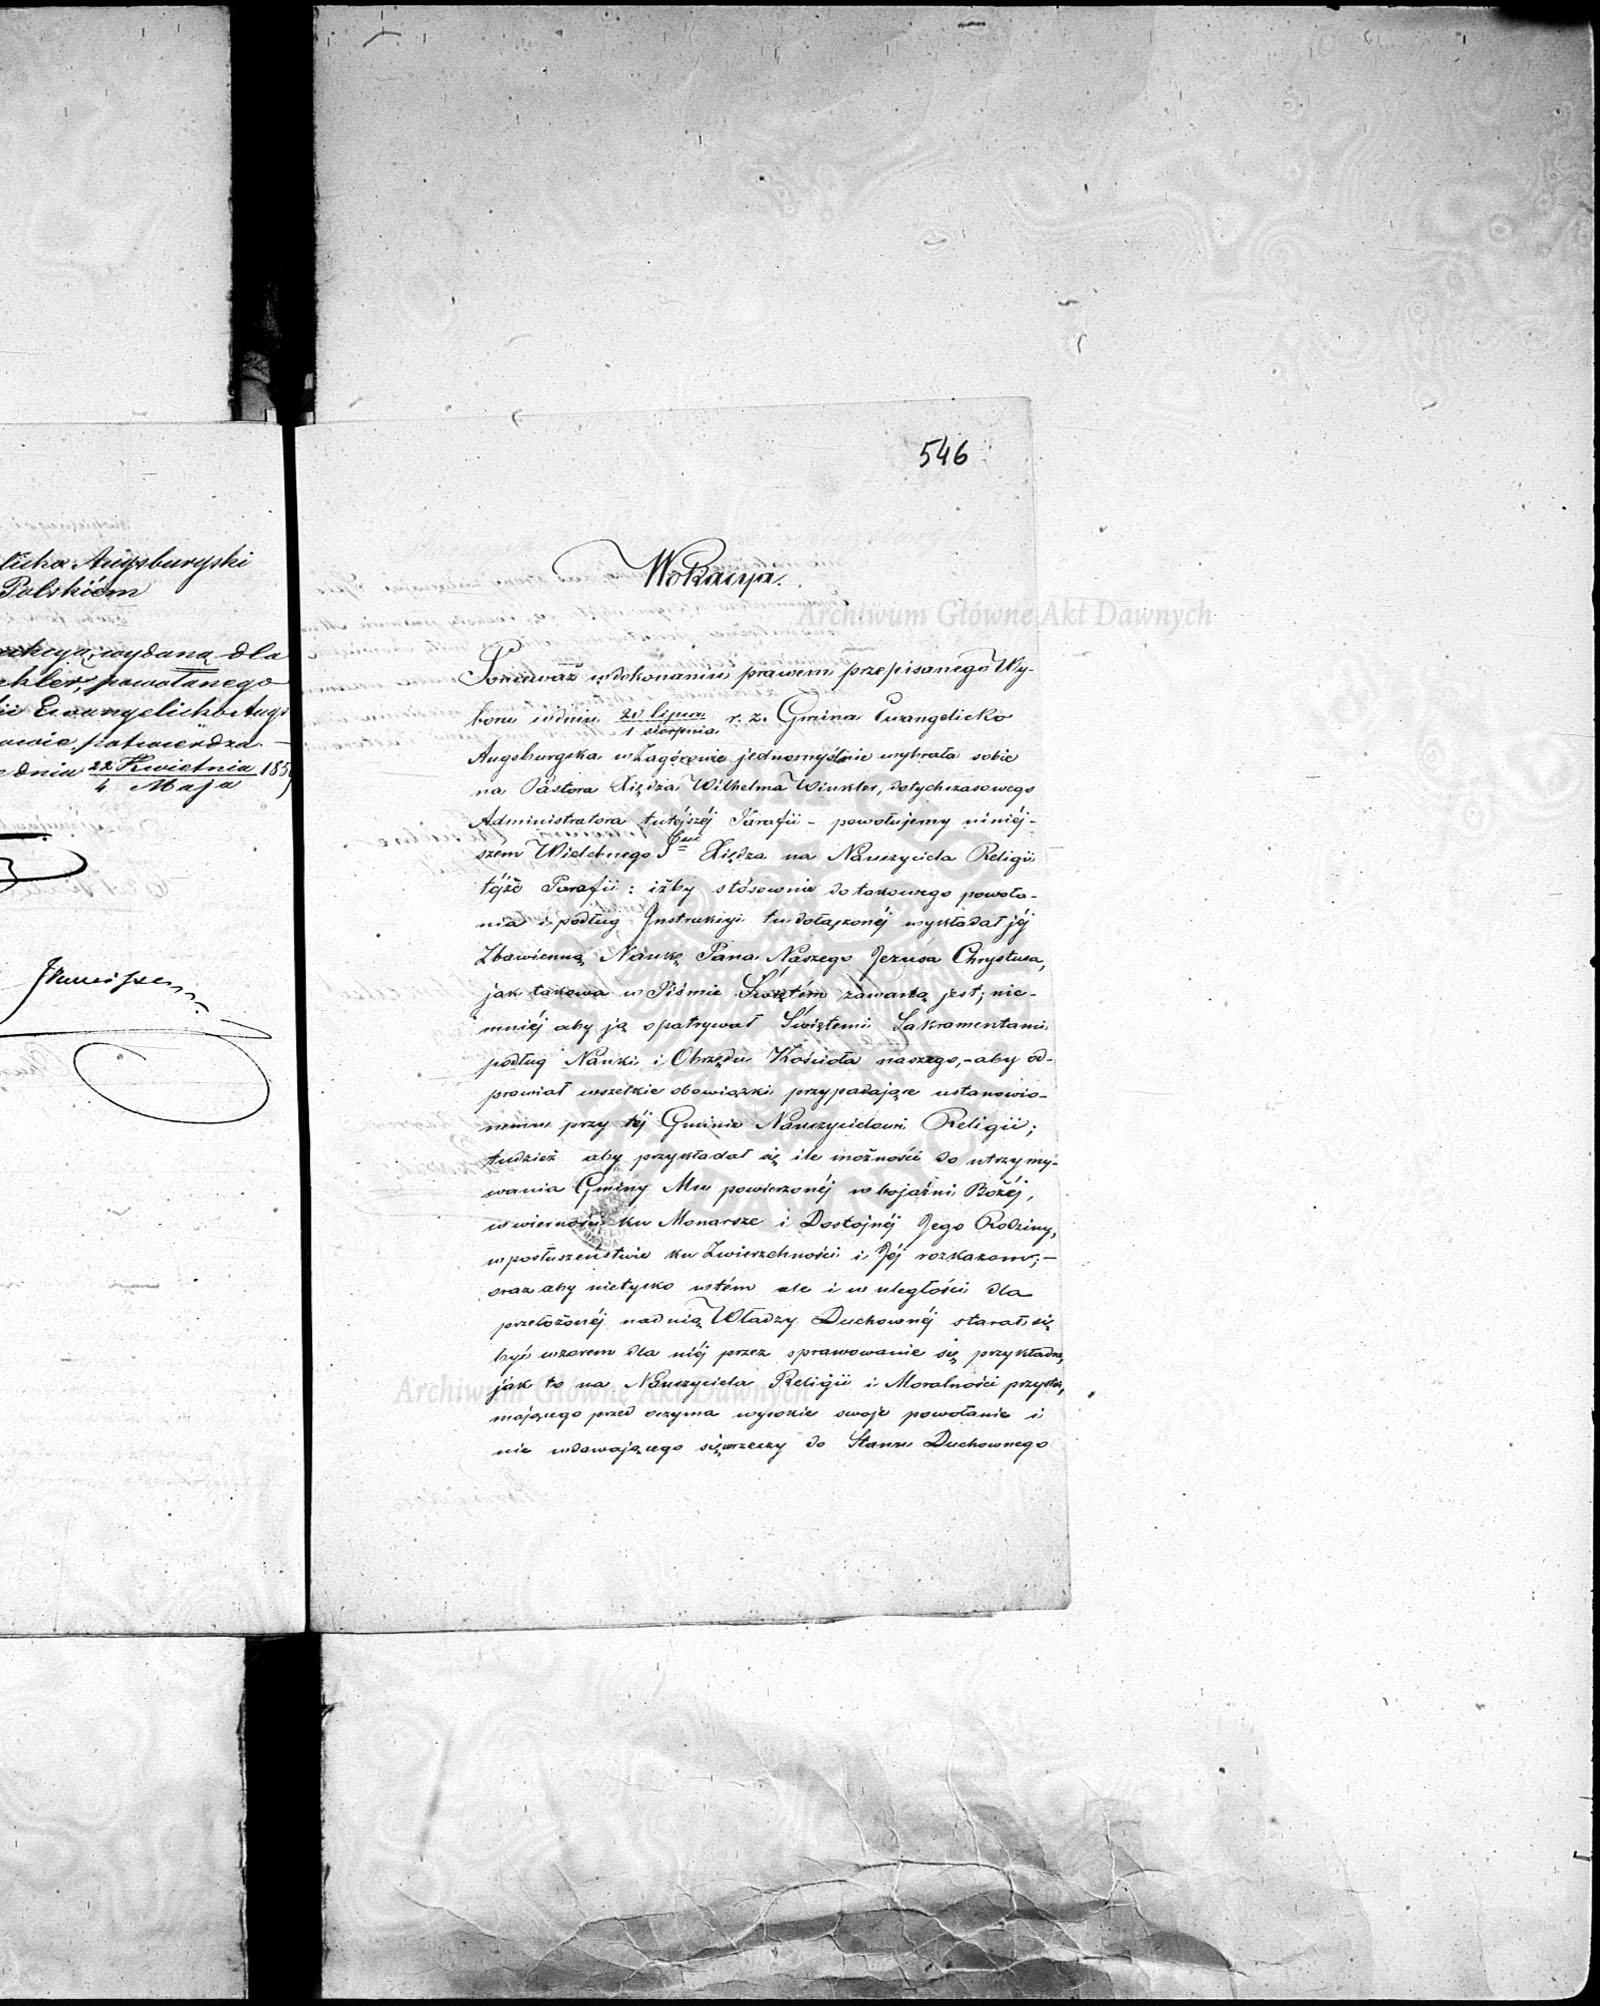 licko Augsburgski
Polskiém
wydaną dla
powołanego
Ewangelicko Augs
potwierdza. —
dnia 22 Kwietnia 185
4 Maja
546
Wokacya.
Ponieważ w dokonaniu prawem przepisanego Wy-
boru w dniu 20 lipca / 1 sierpnia r. z. Gmina Ewangelicko
Augsburgska w Zagórowie jednomyślnie wybrała sobie
na Pastora Xiędza Wilhelma Winkler, dotychczasowego
Administratora tutéjszéj Parafii – powołujemy niniéj-
szém Wielebnego Xiędza na Nauczyciela Religii
téjże Parafii: iżby stósownie do takowego powoła-
nia i podług Instrukcyi tu dołączonéj wykładał jéj
Zbawienną Naukę Pana Naszego Jezusa Chrystusa,
jak takowa w Piśmie Świętém zawartą jest; nie-
mniéj aby ją opatrywał Świętemi Sakramentami
podług Nauki i Obrzędu Kościoła naszego, – aby od-
prawiał wszelkie obowiązki przypadające ustanowio-
nemu przy téj Gminie Nauczycielowi Religii;
tudzież aby przykładał się ile możności do utrzymy-
wania Gminy Mu powierzonéj w bojaźni Bożéj,
w wierności ku Monarsze i Dostojnéj Jego Rodziny,
w posłuszeństwie ku Zwierzchności i Jéj rozkazom; –
oraz aby nietylko w tém ale i w uległości dla
przełożonéj nad nią Władzy Duchownéj starał się
być wzorem dla niéj przez sprawowanie się przykładne,
jak to na Nauczyciela Religii i Moralności przysta,
mającego przed oczyma wysokie swoje powołanie i
nie wdawającego się w rzeczy do Stanu Duchownego
Archiwum Główne Akt Dawnych
Archiwum Główne Akt Dawnych